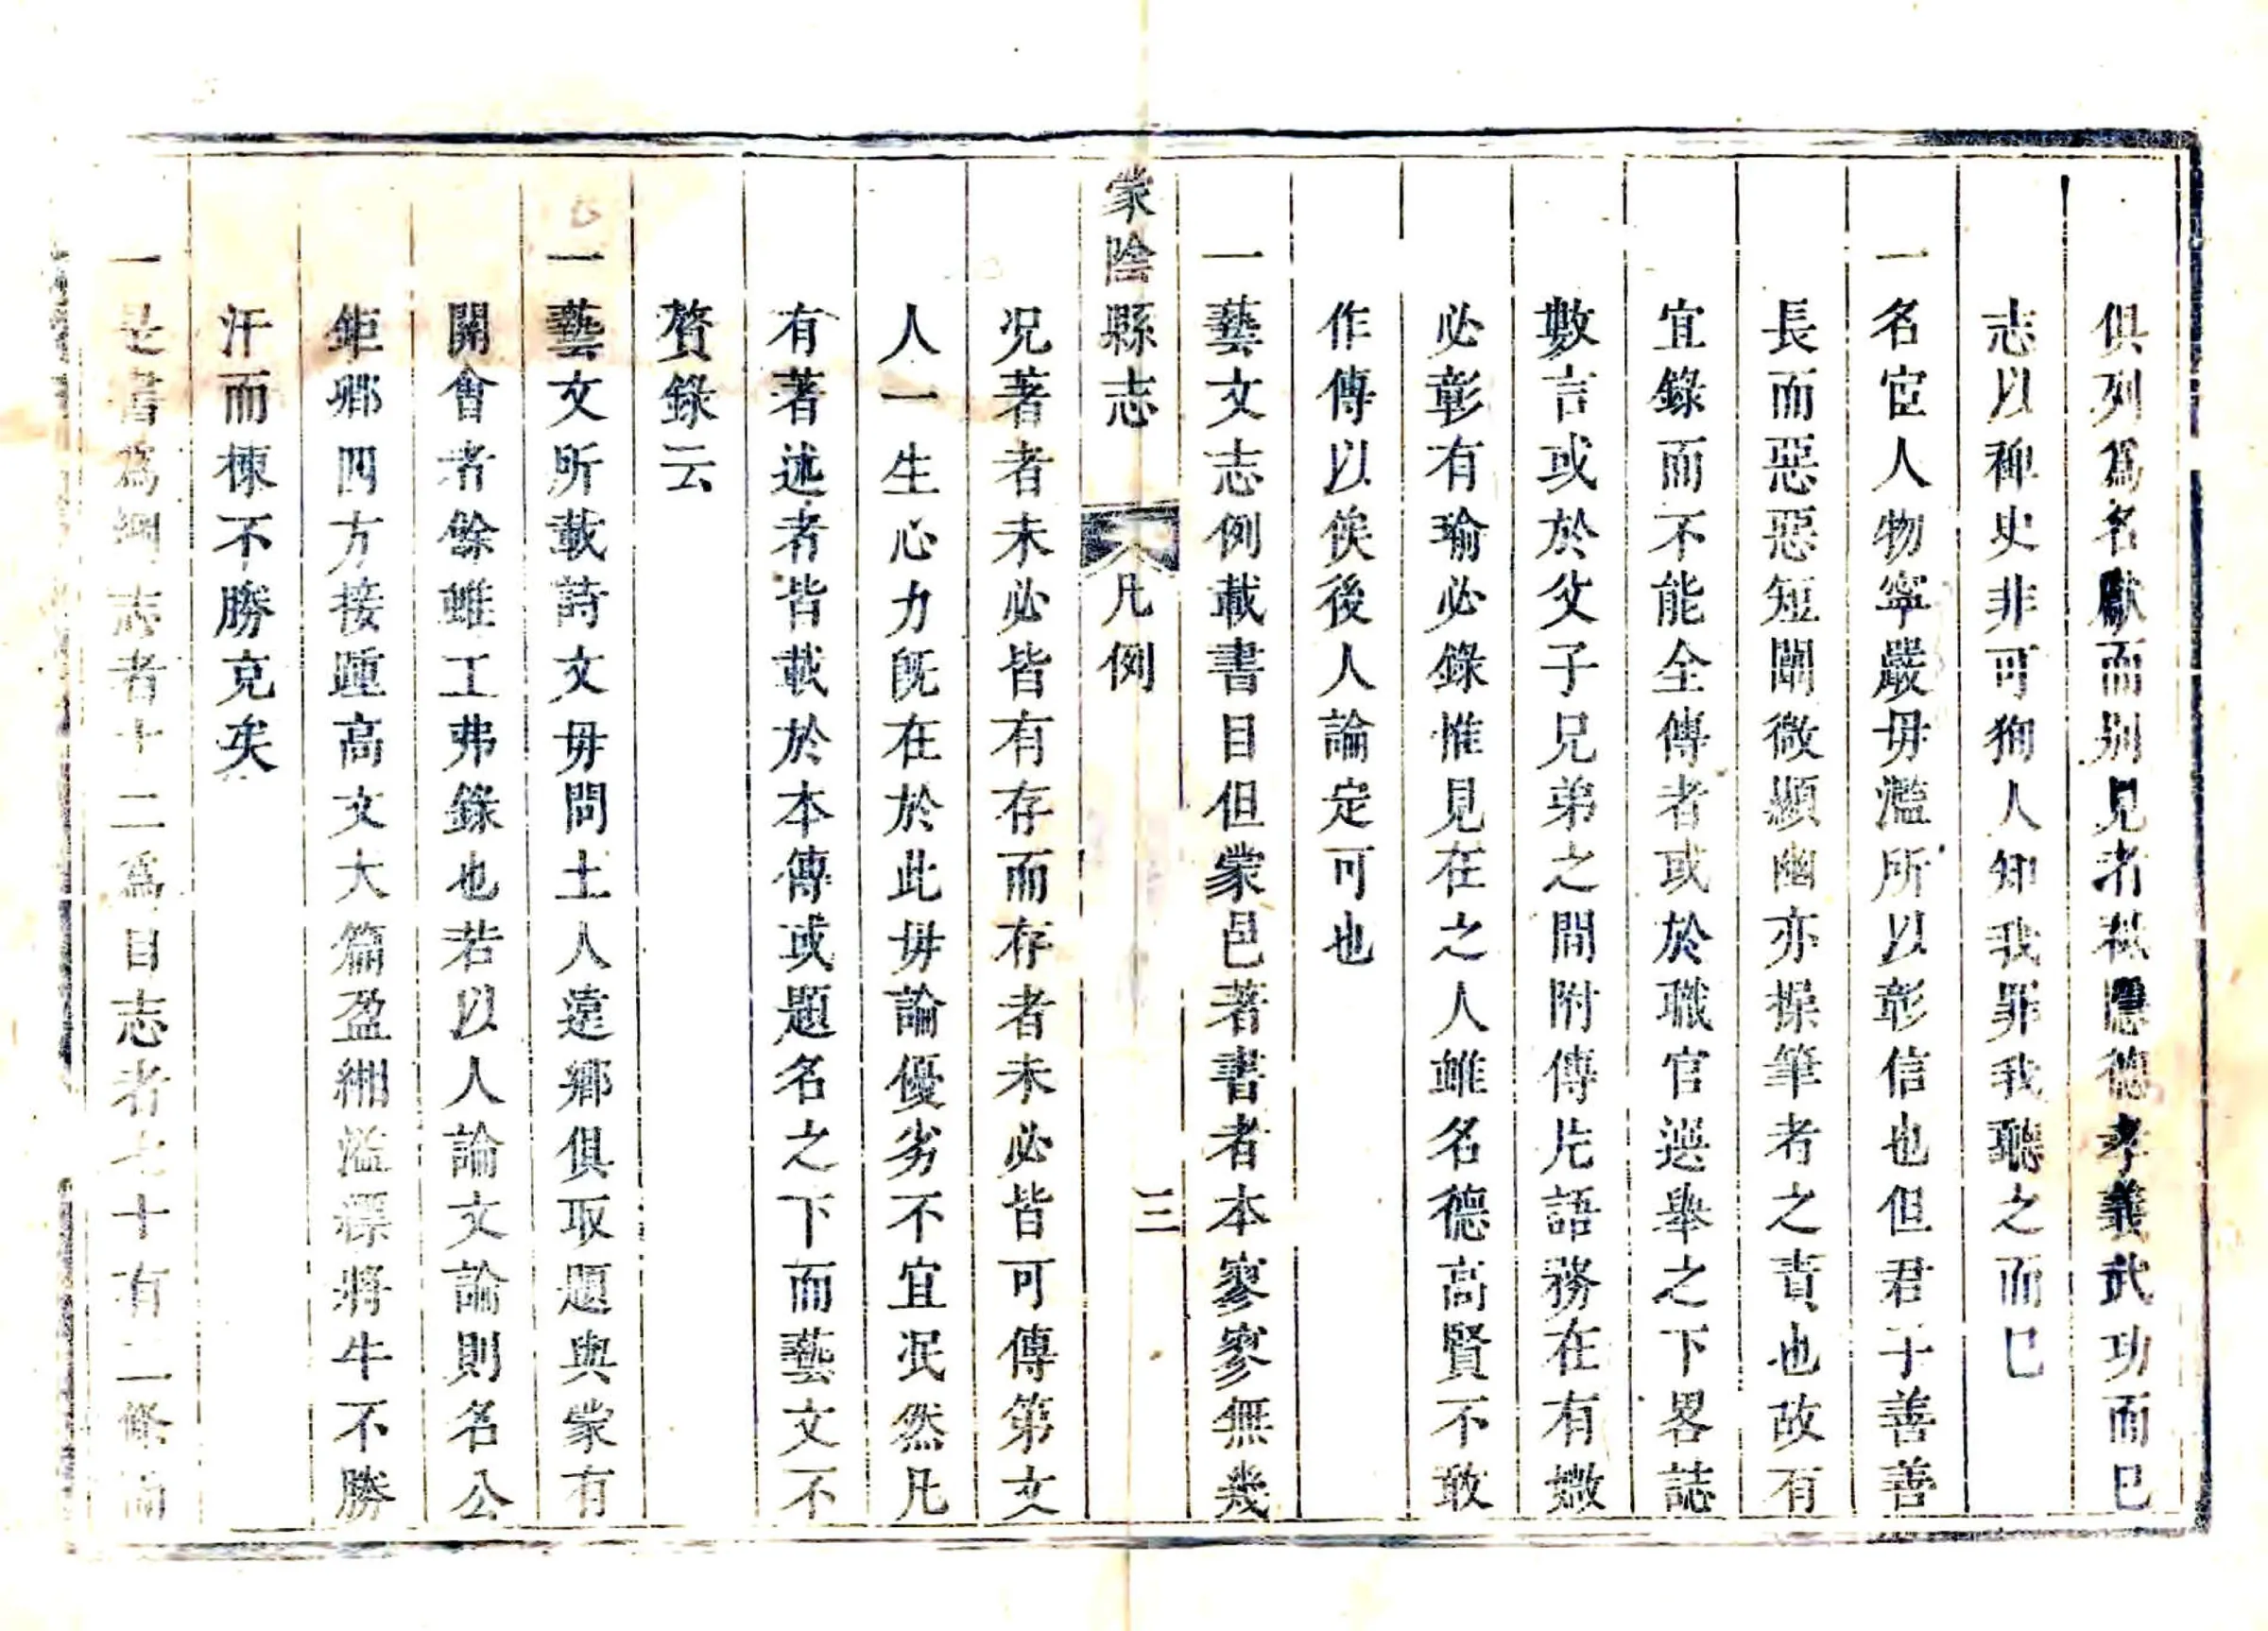 俱列爲名獻而别見者秪隱德孝義武功而巳
志以稗史非可狥人知我罪我聽之而巳
一名宦人物寧嚴毋濫所以彰信也但君子善善
長而惡惡短闡微顯幽亦操筆者之責也故有
宜錄而不能全傳者或於職官選舉之下畧誌
數言或於父子兄弟之間附傳片語務在有媺
必彰有瑜必錄惟見在之人雖名德高賢不敢
作傳以俟後人論定可也
一藝文志例載書目但蒙邑著書者本寥寥無幾
蒙陰縣志 凡例 三
况著者未必皆有存而存者未必皆可傳第文
人一生心力旣在於此毋論優劣不宜泯然凡
有著述者皆載於本傳或題名之下而藝文不
贅錄云
一藝文所載詩文毋問土人遠鄉俱取題與蒙有
關會者餘雖工弗錄也若以人論文論則名公
鉅卿四方接踵高文大篇盈緗溢縹將牛不勝
汗而棟不勝克矣
一是書爲綱志者十二爲目志者七十有二條而